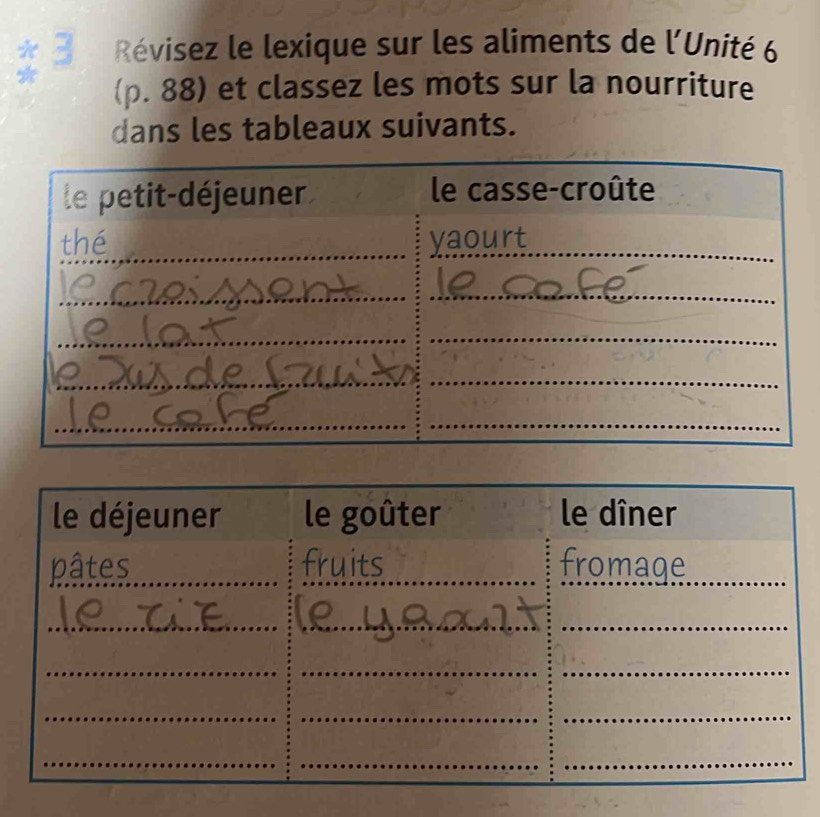 3 Révisez le lexique sur les aliments de l'Unité 6
(p. 88) et classez les mots sur la nourriture
dans les tableaux suivants.
le petit-déjeuner le casse-croûte
thé yaourt
le croissent le café
le lat
le jus de fruits
le café
le déjeuner le goûter le dîner
pâtes fruits fromage
le riz le yaourt